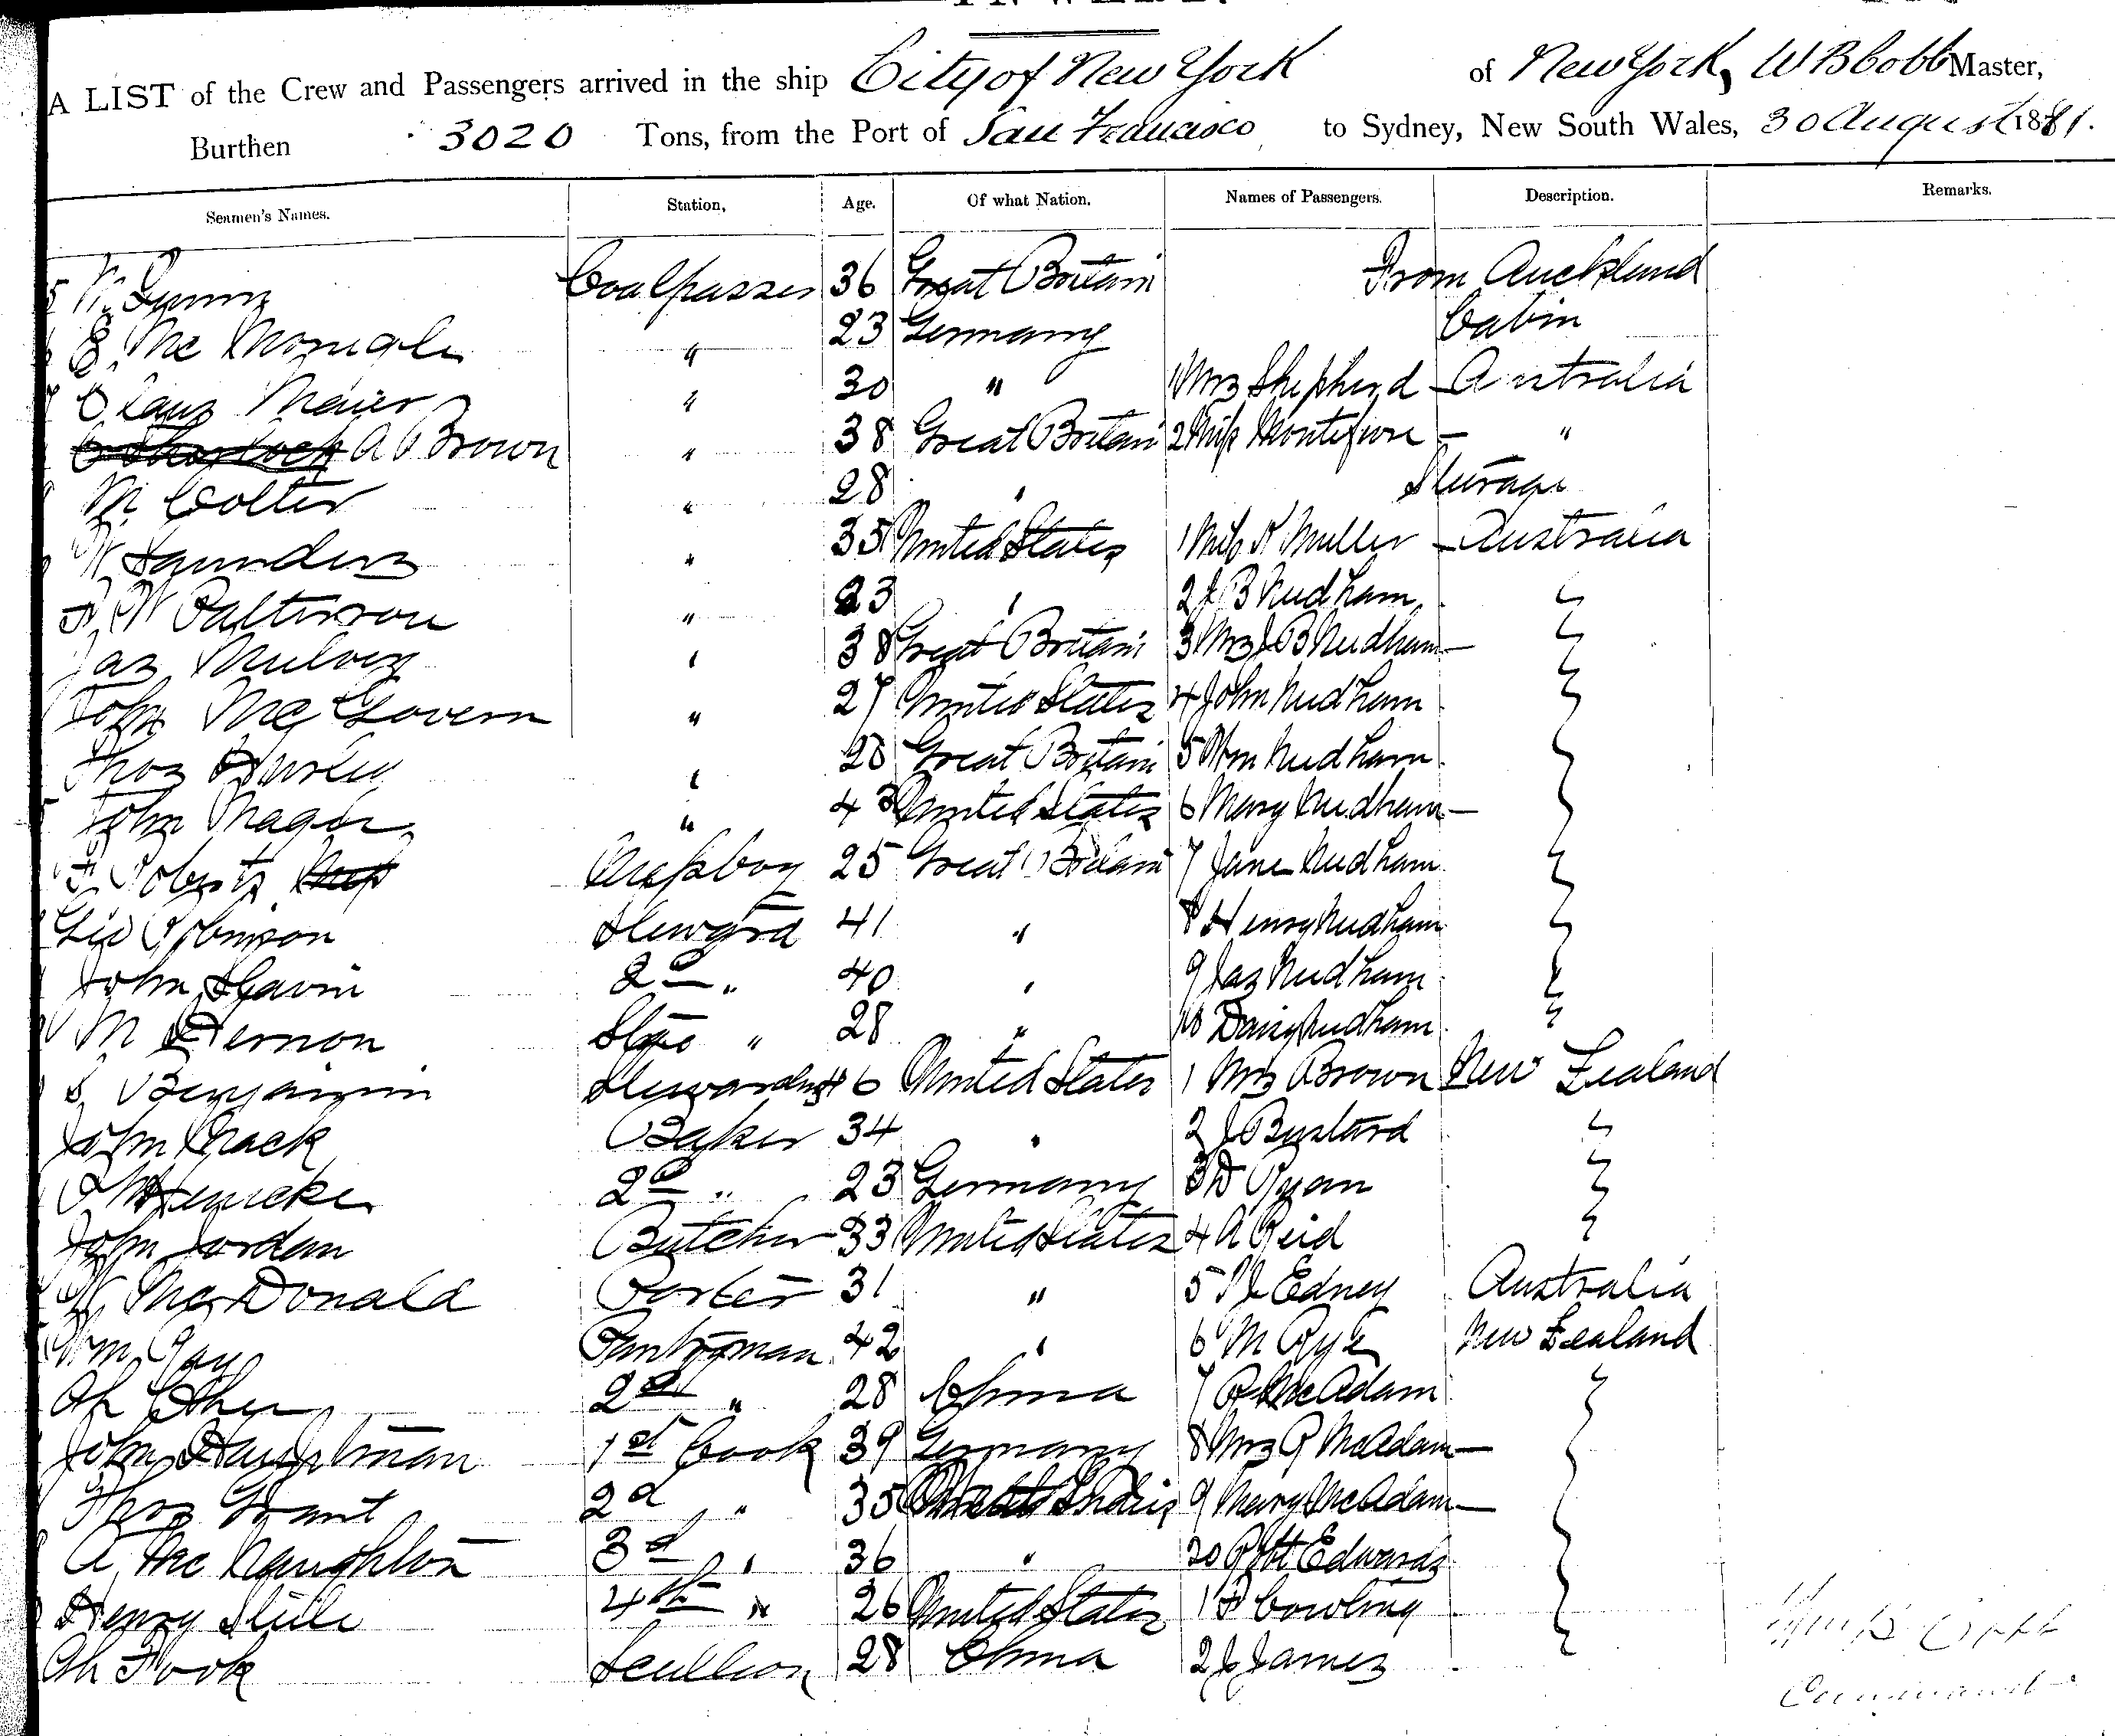 A LIST of the Crew and Passengers arrived in the ship City of New York of New York, W B Cobb Master,
Burthen 3020 Tons, from the Port of San Francisco to Sydney, New South Wales, 30 August 1881.
Seamen's Names. Station, Age. Of what Nation, Names of Passengers. Description. Remarks.
Coalpasser 36 Great Britain From Auckland
E. Mc Monigle " 23 Germany Cabin
Claus Meier " 30 " 1 Mrs Shepherd - Australia
A Brown " 38 Great Britain 2 Miss Montefiore - "
M Colter " 28 " Steerage
W Saunders " 35 United States 1 Miss K Muller - Australia
W Patterson " 23 " 2 J B Nudham "
Jas Mulvey " 38 Great Britain 3 Mrs J B Nudham - "
John McGovern " 27 United States 4 John Nudham "
Thos Hurley " 28 Great Britain 5 Wm Nudham "
John Magor " 43 United States 6 Mary Nudham - "
F Roberts Messboy 25 Great Britain 7 Jane Nudham "
Geo Robinson Steward 41 " 8 Henry Nudham "
John Gavin 2d " 40 " 9 Jas Nudham "
M Hernon " 28 " 10 Daisy Nudham "
S Benjamin Stewardess 46 United States 1 Mrs Brown New Zealand
John Mack Baker 34 " 2 J Bustard "
Henicke 2d " 23 Germany 3 D Ryan "
John Jordan Butcher 33 United States 4 A Reid "
W McDonald Porter 31 " 5 Edney Australia
Wm Gay Pantryman 42 " 6 M Pye New Zealand
Ah 2d " 28 China 7 R McAdam "
John 1st Cook 39 Germany 8 Mrs R McAdam - "
Thos Grant 2d " 35 Indies 9 Mary McAdam - "
A. Mc Naughton 3d " 36 " 20 Robt Edwards "
Henry 4th " 26 United States 1 F Cowling "
Ah Fook Scullion 28 China 2 J James "
Commander